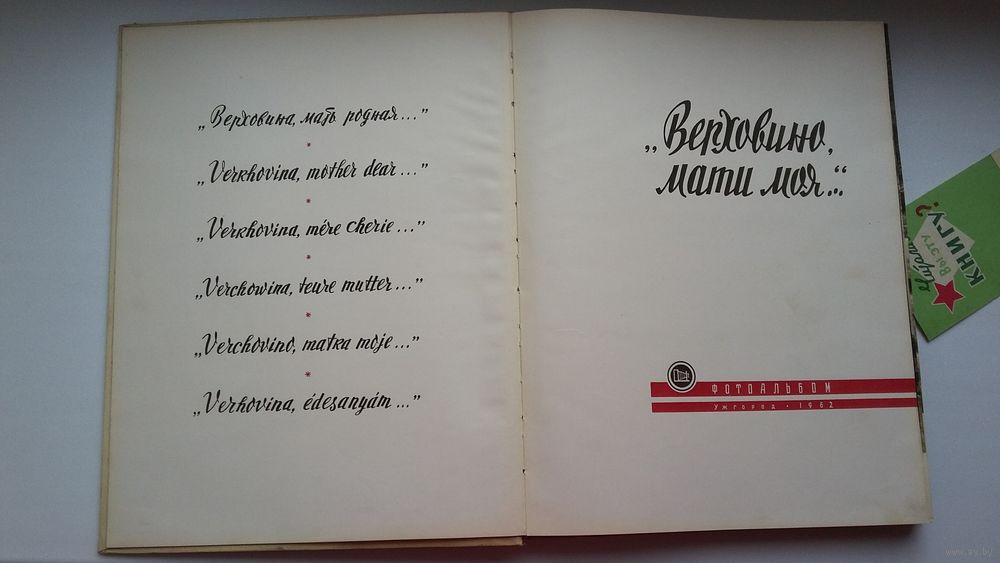 „Верховина, мать родная...”
*
„Verkhovina, mother dear ...”
*
„Verkhovina, mére cherie ...”
*
„Verchowina, teure mutter...”
*
„Verchovino, matka moje ...”
*
„Verhovina, édesanyám ...”
„Верховино,
мати моя...“
ФОТОАЛЬБОМ
УЖГОРОД · 1962
Читали
ВЫ ЭТУ
КНИГУ?
www.ay.by